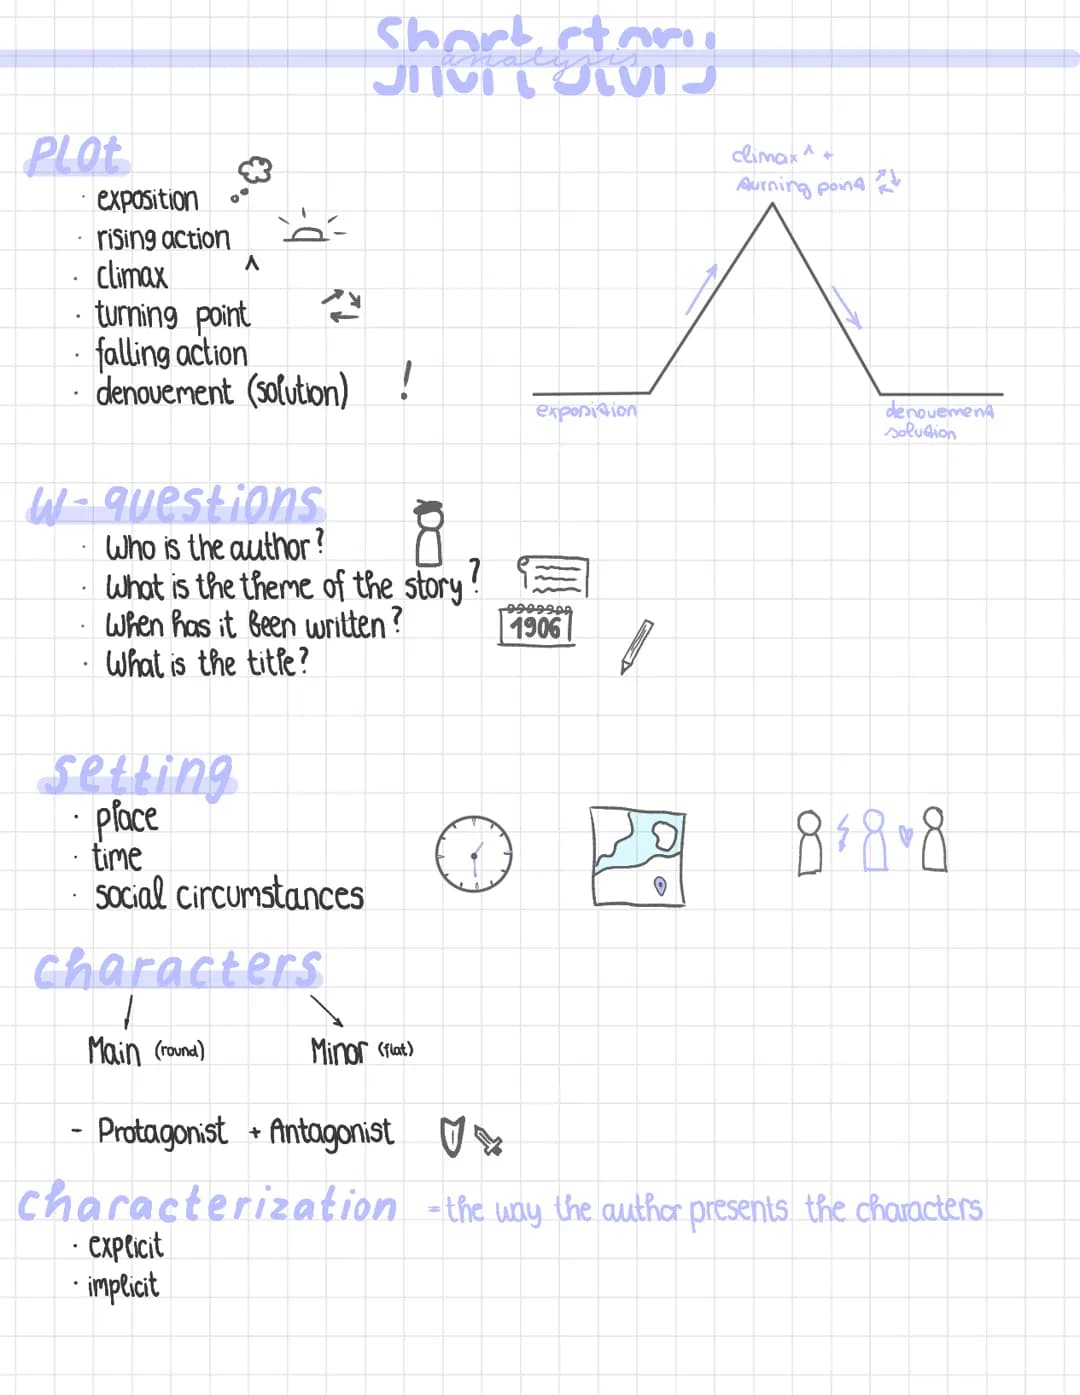 Short story
analysis
PLOT
· exposition
· rising action
· climax
· turning point
· falling action
· denouement (solution)
!
climax ^ +
turning point
exposition
denouement
solution
W-questions
· Who is the author?
· What is the theme of the story?
· When has it been written?
· What is the title?
1906
setting
· place
· time
· social circumstances
characters
Main (round)
Minor (flat)
- Protagonist + Antagonist
characterization = the way the author presents the characters
· explicit
· implicit